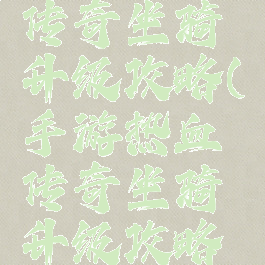 传奇坐骑
升级攻略(
手游热血
传奇坐骑
升级攻略